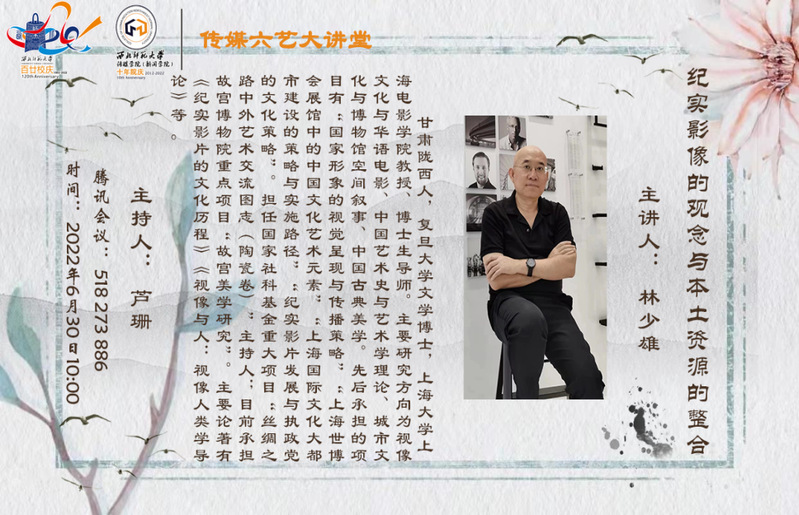 西北师范大学
百廿校庆
120th Anniversary
西北师范大学
传媒学院(新闻学院)
十年院庆 2012-2022
10th Anniversary
传媒六艺大讲堂
纪实影像的观念与本土资源的整合
主讲人：林少雄
甘肃陇西人，复旦大学文学博士，上海大学上
海电影学院教授、博士生导师。主要研究方向为视像
文化与华语电影、中国艺术史与艺术学理论、城市文
化与博物馆空间叙事、中国古典美学。先后承担的项
目有：“国家形象的视觉呈现与传播策略”、“上海世博
会展馆中的中国文化艺术元素”、“上海国际文化大都
市建设的策略与实施路径”、“纪实影片发展与执政党
的文化策略”。担任国家社科基金重大项目：“丝绸之
路中外艺术交流图志（陶瓷卷）”主持人；目前承担
故宫博物院重点项目：“故宫美学研究”。主要论著有
《纪实影片的文化历程》《视像与人：视像人类学导
论》等。
主持人：芦珊
腾讯会议：518 273 886
时间：2022年6月30日10:00